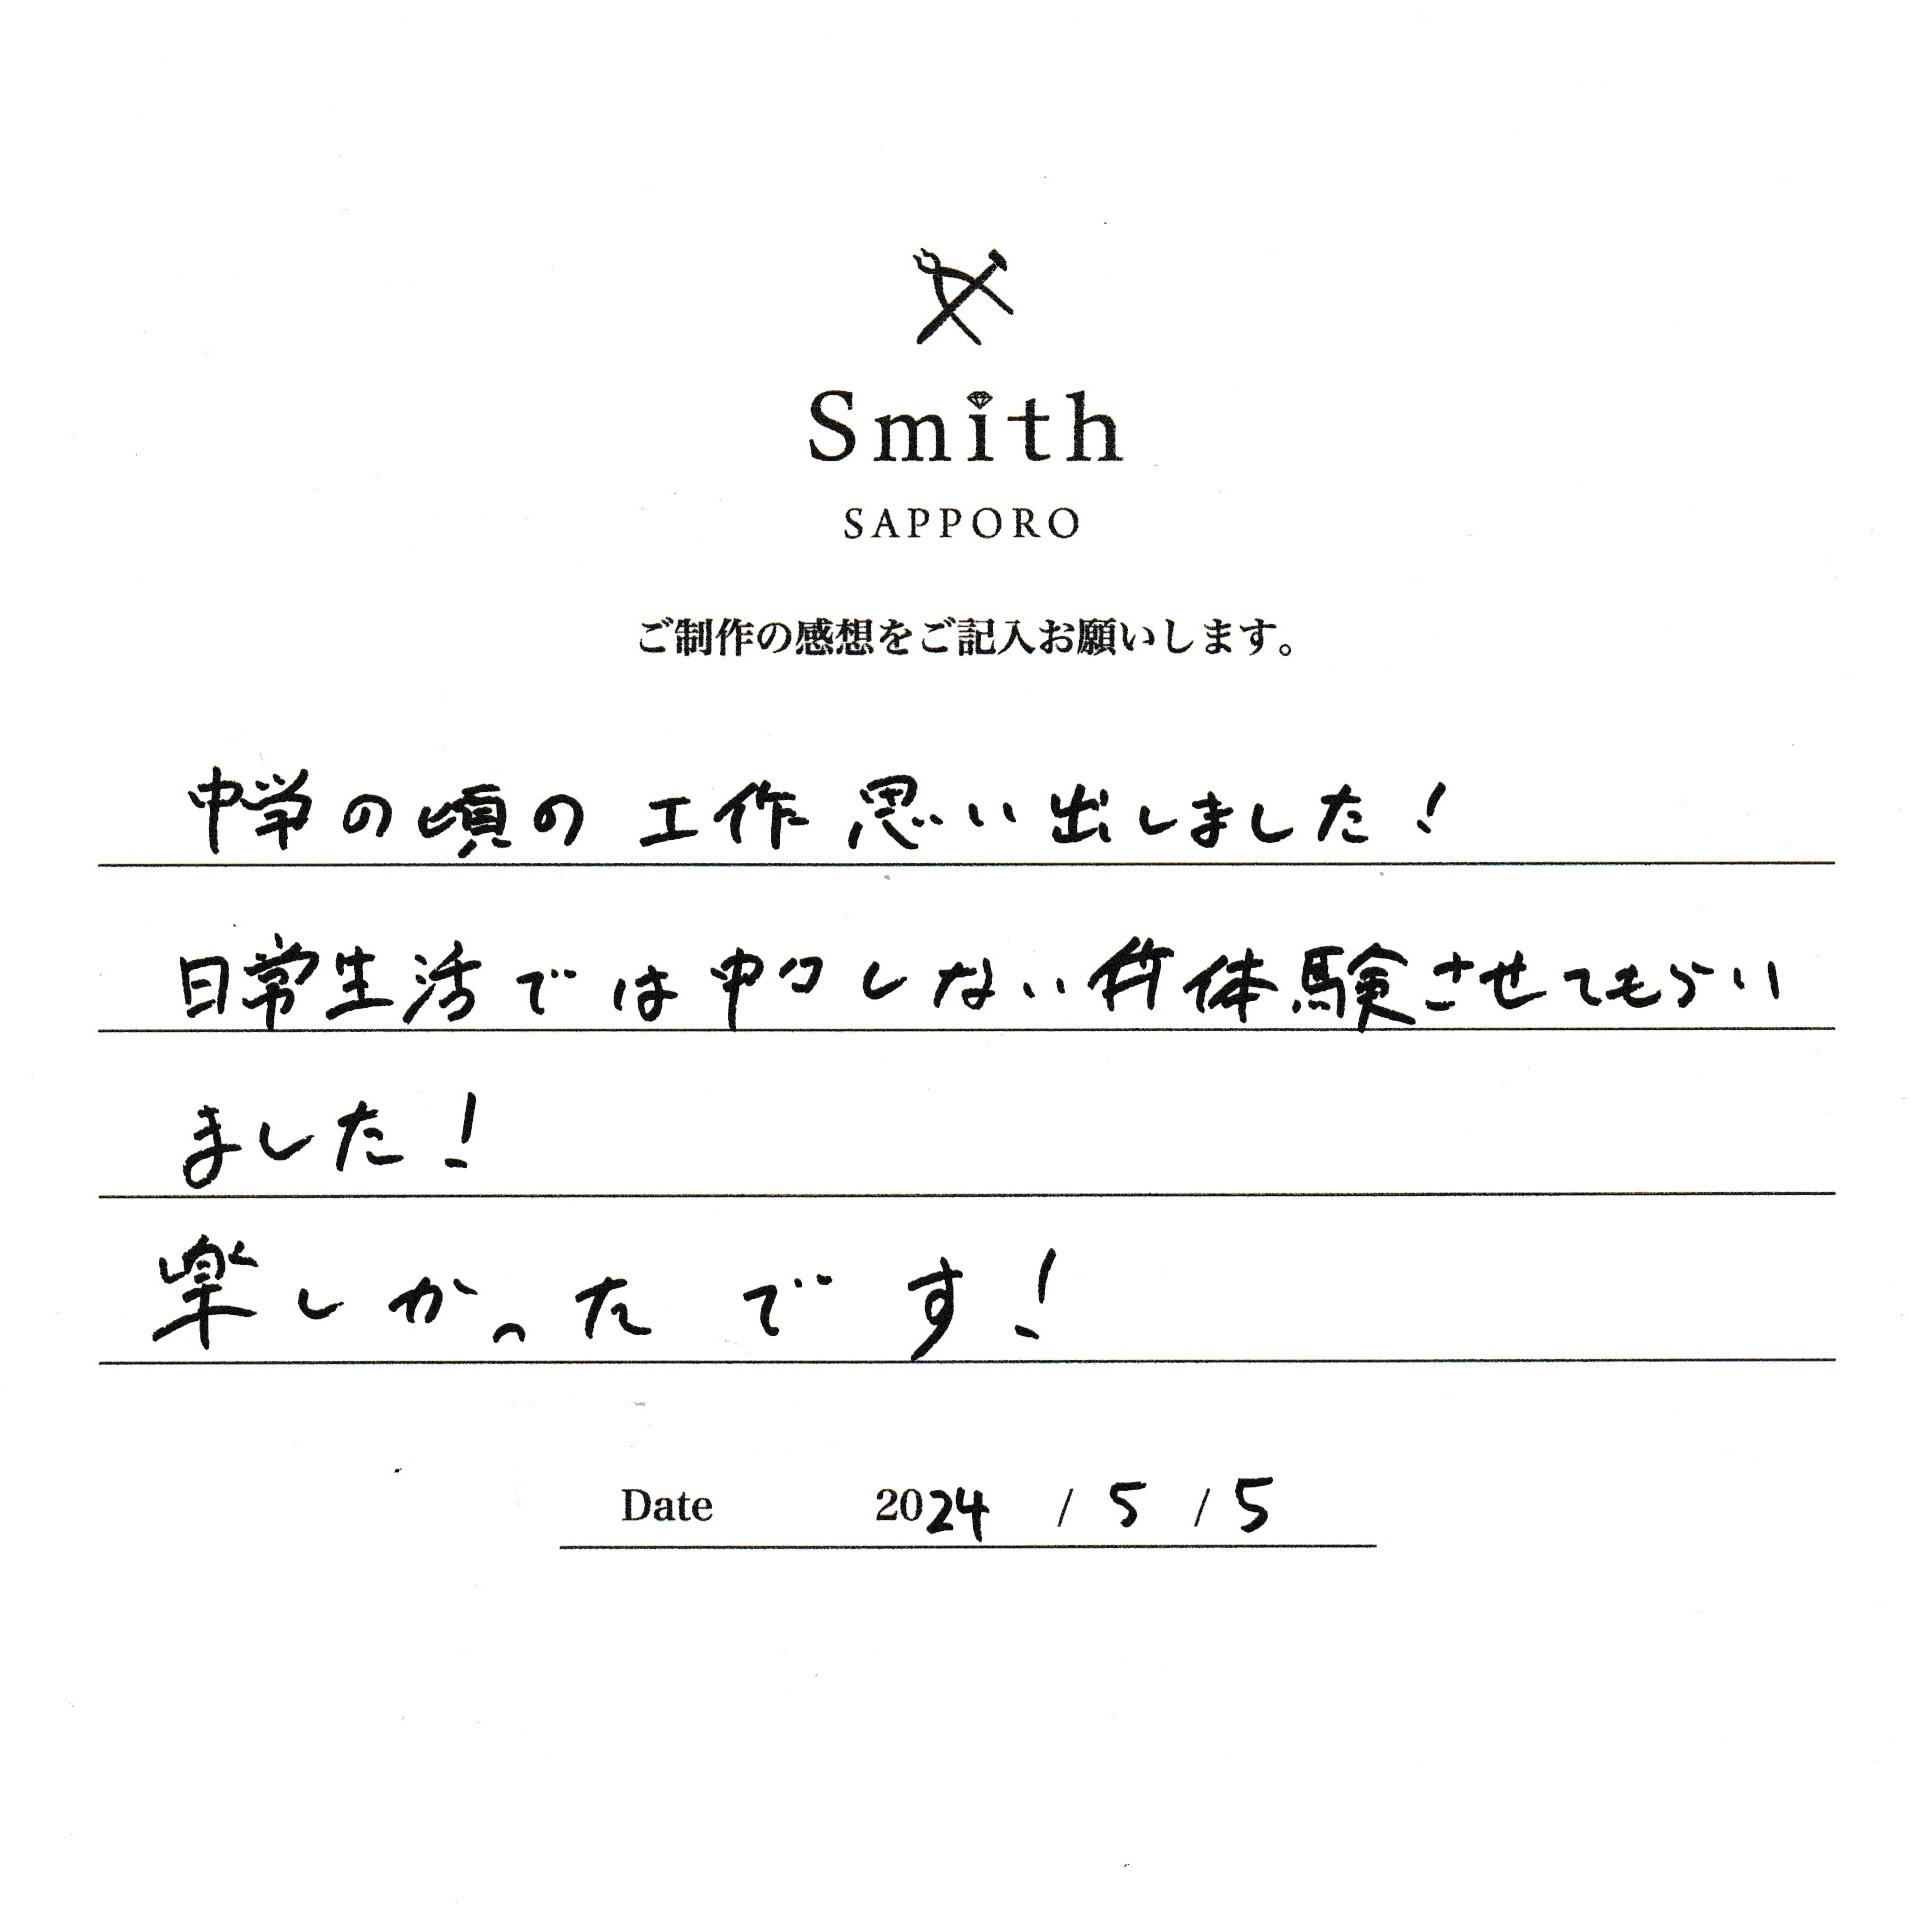 Smith
SAPPORO
ご制作の感想をご記入お願いします。
中学の頃の工作思い出しました！
日常生活では中々しない体験させてもらい
ました！
楽しかったです！
Date 2024 / 5 / 5